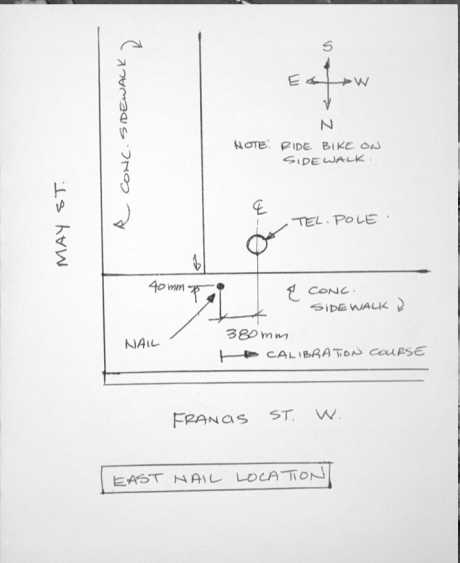 CONC. SIDEWALK
S
E W
N
NOTE: RIDE BIKE ON
SIDEWALK.
MAY ST.
℄
TEL. POLE.
40mm
CONC.
SIDEWALK
380mm
NAIL
CALIBRATION COURSE
FRANCIS ST. W.
EAST NAIL LOCATION